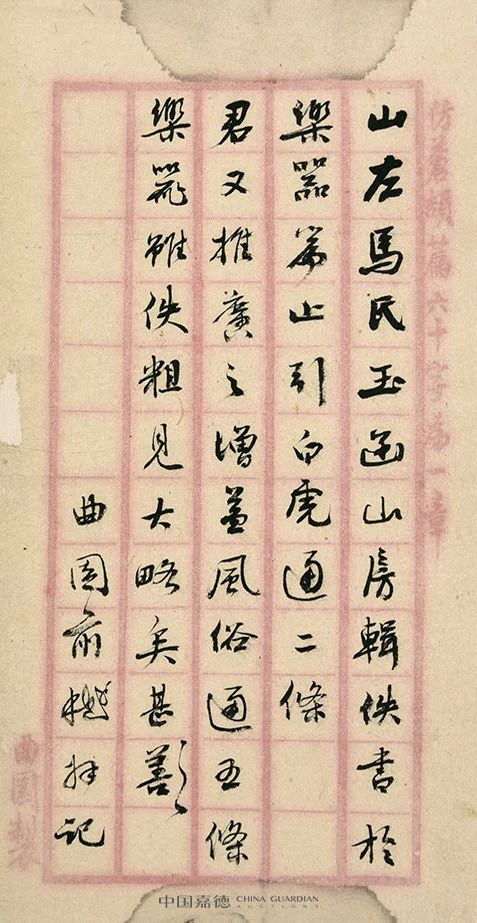 仿蒼頡篇六十字為一章
山左馬氏玉函山房輯佚書於
樂器篇止引白虎通二條
君又推廣之增益風俗通五條
樂器雖佚粗見大略矣甚善〻
曲園俞樾拜記
曲園製
中国嘉德 CHINA GUARDIAN
AUCTIONS